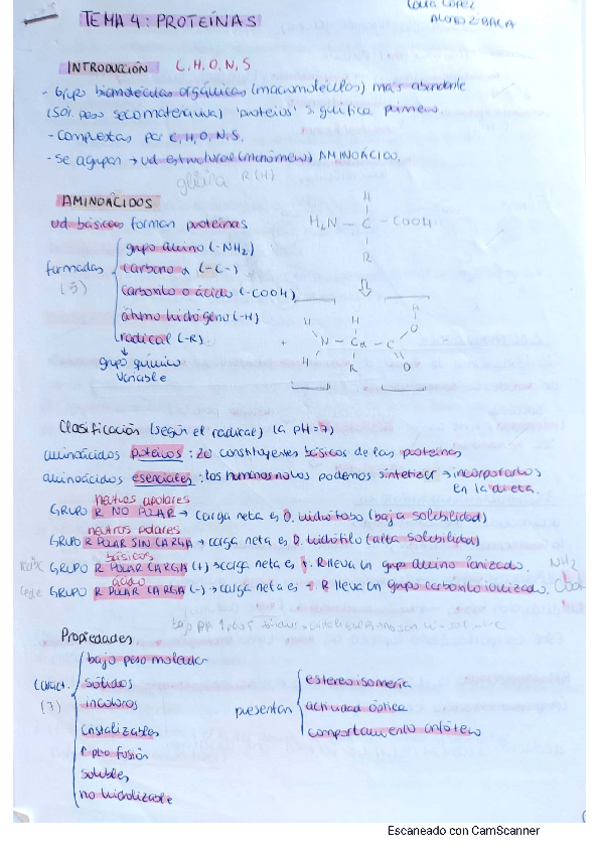 TEMA 4: PROTEÍNAS
INTRODUCCIÓN C, H, O, N, S
- Grupo biomoléculas orgánicas (macromoléculas) más abundante
(50% peso seco materia viva) 'proteios' significa primero.
- Compuestas por C, H, O, N, S.
- Se agrupan → ud estructural (monómero) AMINOÁCIDO.
glicina R (H)
AMINOÁCIDOS
ud básicas forman proteínas
formadas (5)
grupo amino (-NH2)
carbono α (-C-)
carboxilo o ácido (-COOH)
átomo hidrógeno (-H)
radical (-R)
grupo químico
variable
H
H2N - C - COOH
R
H H O
+ N - Cα - C
H R O
Clasificación (según el radical) (a pH=7)
aminoácidos proteicos: 20 constituyentes básicos de las proteínas
aminoácidos esenciales: los humanos no los podemos sintetizar → incorporarlos
en la dieta.
neutros apolares
GRUPO R NO POLAR → carga neta es 0. hidrófobo (baja solubilidad)
neutros polares
GRUPO R POLAR SIN CARGA → carga neta es 0. hidrófilo (alta solubilidad)
básicos
GRUPO R POLAR CARGA (+) → carga neta es +. R lleva un grupo amino ionizado. NH2
ácido
cede GRUPO R POLAR CARGA (-) → carga neta es -. R lleva un grupo carboxilo ionizado. COOH
Propiedades
caract. (7)
bajo peso molecular
sólidos
incoloros
cristalizables
↑ pto fusión
solubles
no hidrolizable
presentan
estereoisomería
actividad óptica
comportamiento anfótero
Escaneado con CamScanner